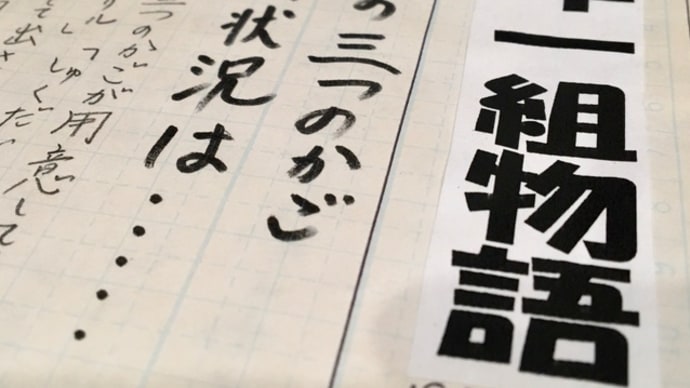 一組物語
の三つのかご
状況は・・・・・
三つのかごが用意して
しゅくだ
て出さ